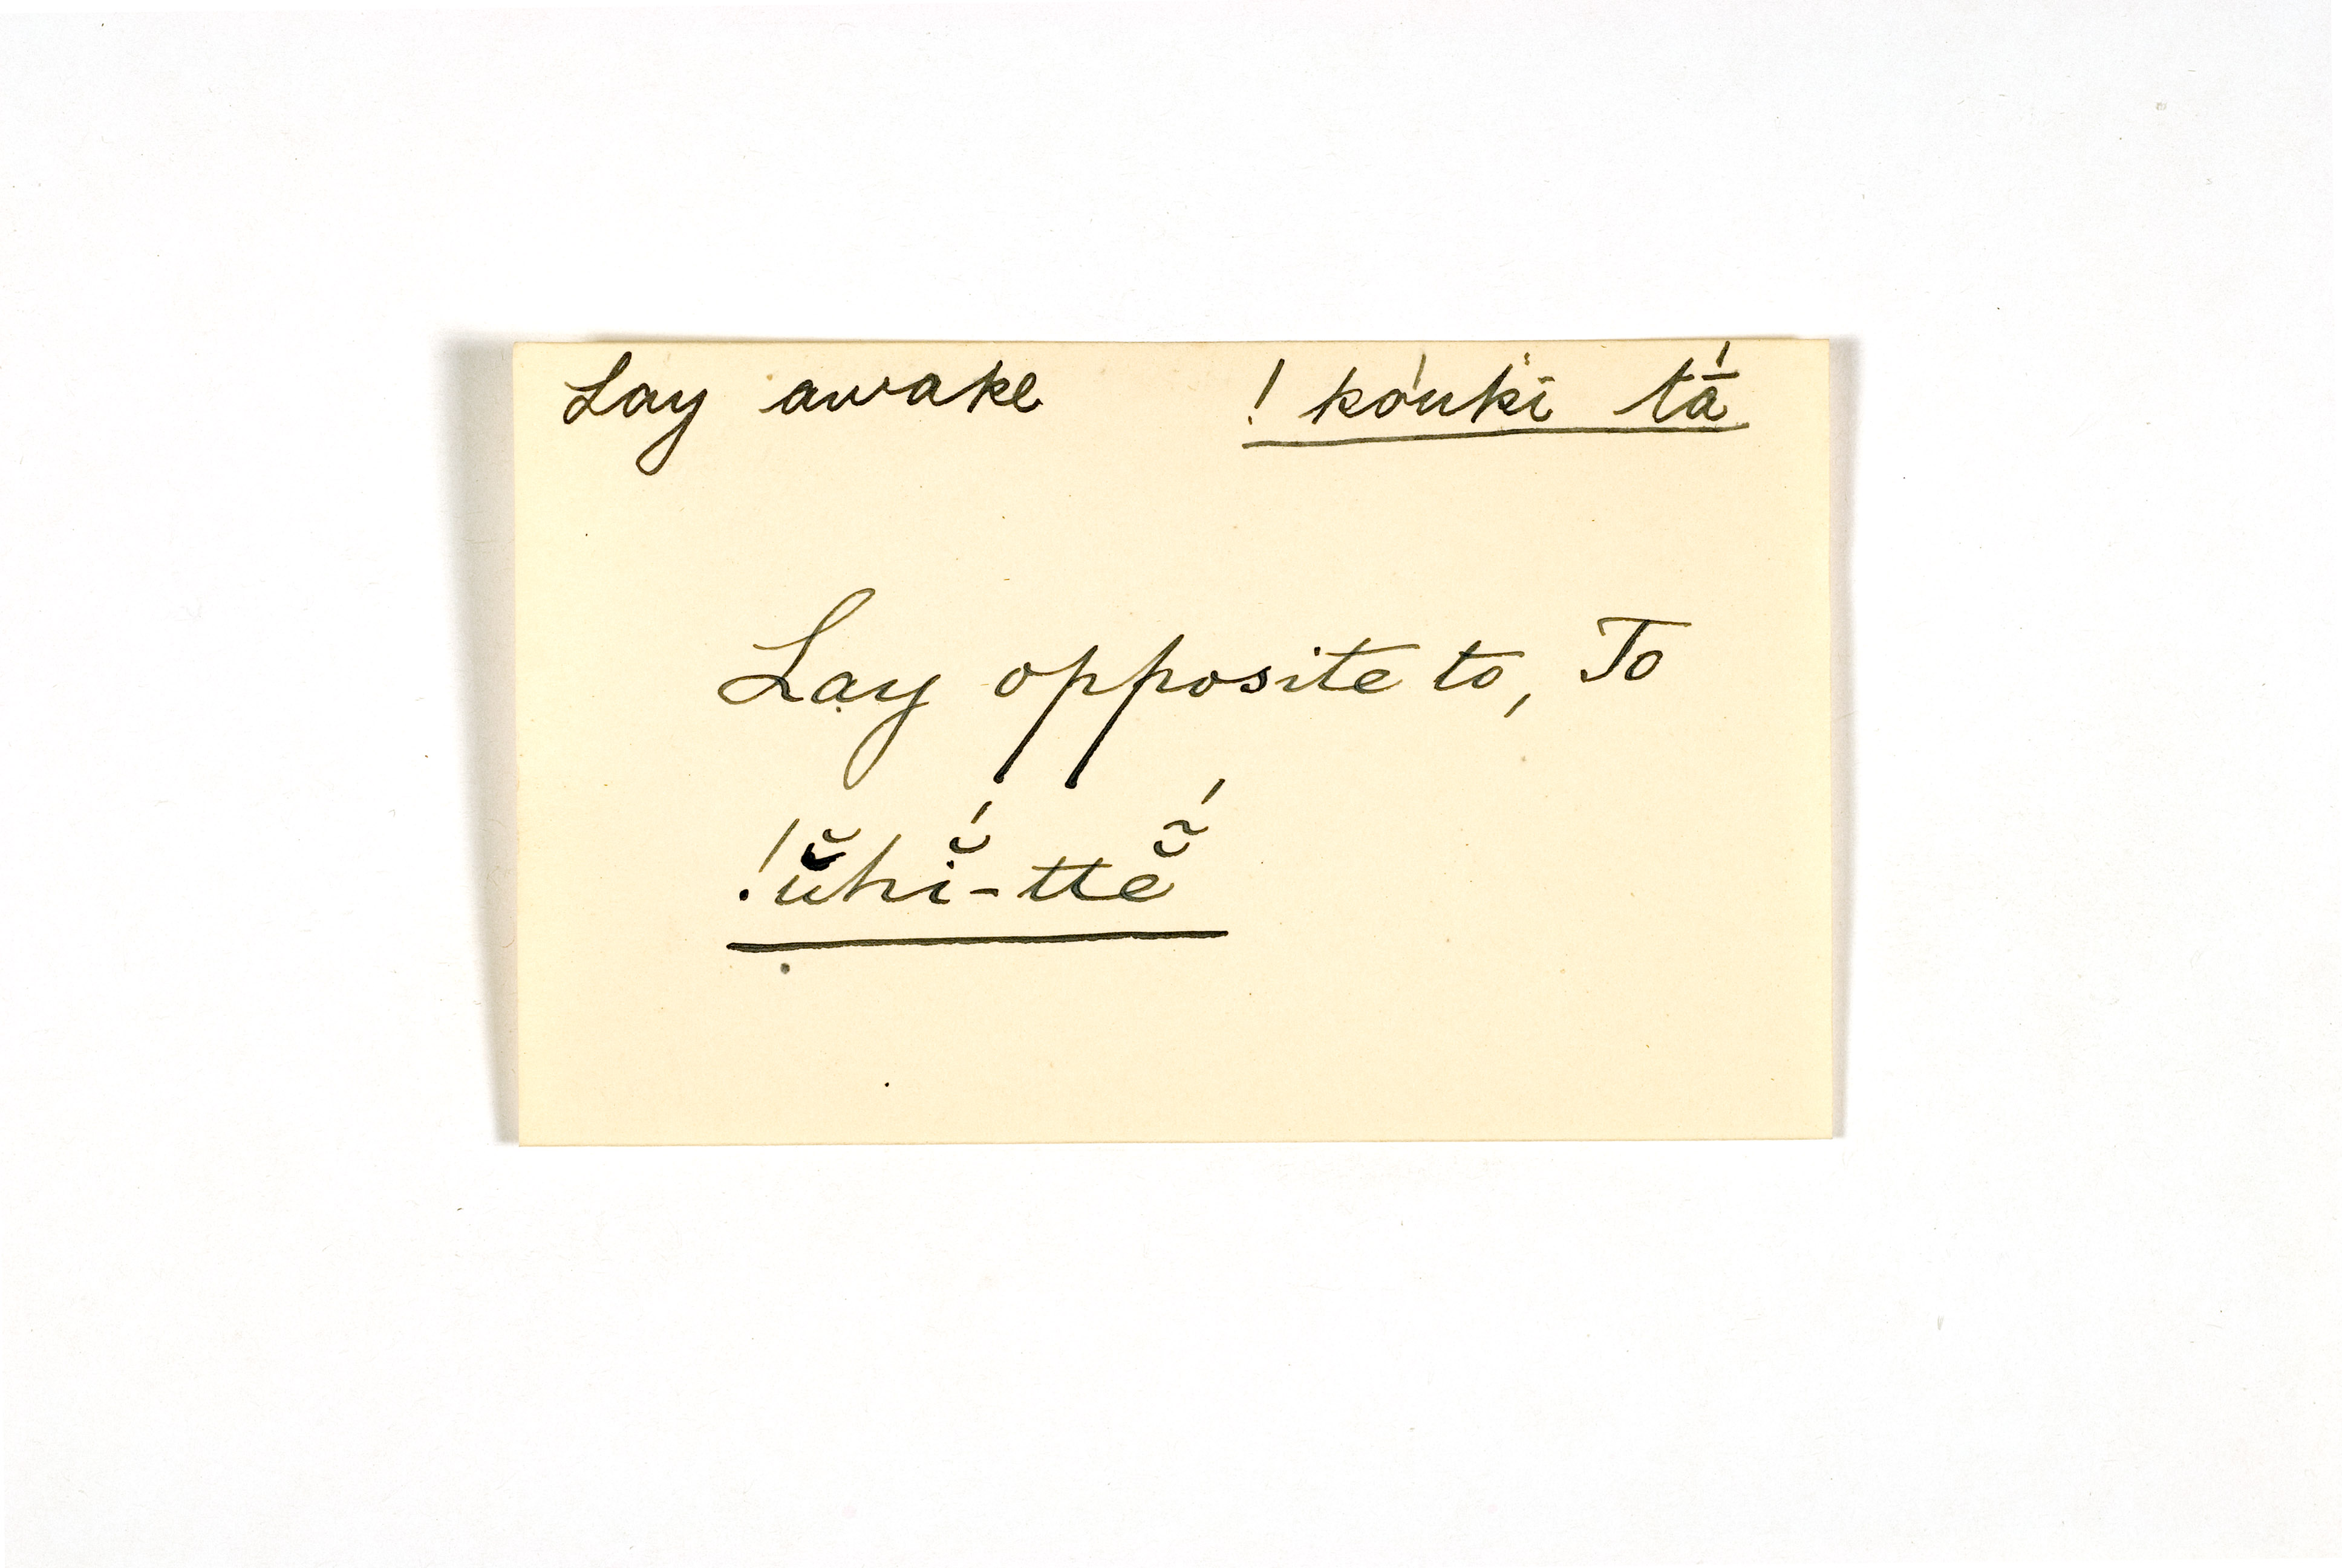 Lay awake ! kóuki tā́
Lay opposite to, To
!ŭ̆hĭ́-ttĕ̃́